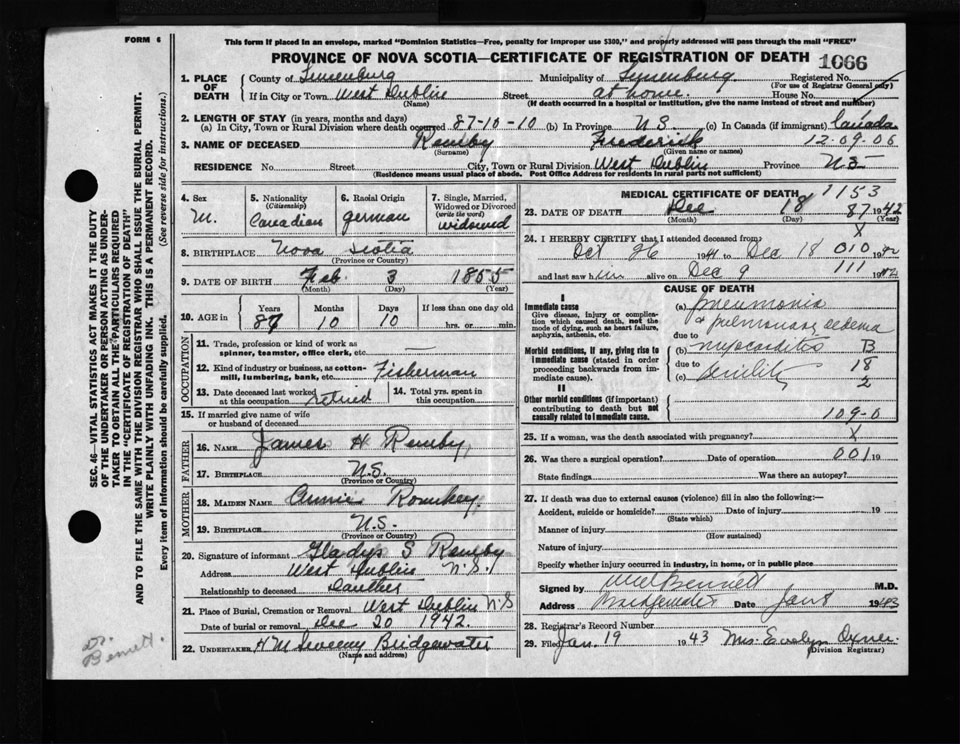 FORM 6
This form if placed in an envelope, marked "Dominion Statistics—Free, penalty for improper use $300," and properly addressed will pass through the mail "FREE"
PROVINCE OF NOVA SCOTIA—CERTIFICATE OF REGISTRATION OF DEATH 1066
1. PLACE OF DEATH County of Lunenburg Municipality of Lunenburg Registered No.
(For use of Registrar General only)
If in City or Town West Dublin Street at home. House No.
(Name) (If death occurred in a hospital or institution, give the name instead of street and number)
2. LENGTH OF STAY (in years, months and days)
(a) In City, Town or Rural Division where death occurred 87-10-10 (b) In Province N S (c) In Canada (if immigrant) Canada
3. NAME OF DECEASED Remby Frederick 12-09-06
(Surname) (Given name or names)
RESIDENCE No. Street City, Town or Rural Division West Dublin Province N.S
(Residence means usual place of abode. Post Office Address for residents in rural parts not sufficient)
4. Sex M.
5. Nationality (Citizenship) Canadian
6. Racial Origin german
7. Single, Married, Widowed or Divorced (write the word) widowed
8. BIRTHPLACE Nova Scotia
(Province or Country)
9. DATE OF BIRTH Feb. 3 1855
(Month) (Day) (Year)
10. AGE in Years Months Days If less than one day old
87 10 10 hrs. or min.
OCCUPATION
11. Trade, profession or kind of work as spinner, teamster, office clerk, etc. —
12. Kind of industry or business, as cotton-mill, lumbering, bank, etc. Fisherman
13. Date deceased last worked at this occupation retired
14. Total yrs. spent in this occupation
15. If married give name of wife or husband of deceased
FATHER
16. NAME James H Remby
17. BIRTHPLACE N.S.
(Province or Country)
MOTHER
18. MAIDEN NAME Annie Romkey
19. BIRTHPLACE N.S.
(Province or Country)
20. Signature of informant Gladys S Remby
Address West Dublin N.S.
Relationship to deceased Daughter
21. Place of Burial, Cremation or Removal West Dublin N S
Date of burial or removal Dec 20 1942.
22. UNDERTAKER H M Bridgewater
(Name and address)
MEDICAL CERTIFICATE OF DEATH 1153
23. DATE OF DEATH Dec 18 87 1942
(Month) (Day) (Year)
X
24. I HEREBY CERTIFY that I attended deceased from
Oct 26 1941 to Dec 18 010 1942
and last saw him alive on Dec 9 111 1942
CAUSE OF DEATH
I
Immediate cause
Give disease, injury or complication which caused death, not the mode of dying, such as heart failure, asphyxia, asthenia, etc.
(a) pneumonia
& pulmonary oedema
due to
Morbid conditions, if any, giving rise to immediate cause (stated in order proceeding backwards from immediate cause).
(b) myocarditis B
due to 18
(c) senility 2
II
Other morbid conditions (if important) contributing to death but not causally related to immediate cause.
109-0
25. If a woman, was the death associated with pregnancy? X
26. Was there a surgical operation? Date of operation 001 19
State findings Was there an autopsy?
27. If death was due to external causes (violence) fill in also the following:—
Accident, suicide or homicide? Date of injury 19
(State which)
Manner of injury
(How sustained)
Nature of injury
Specify whether injury occurred in industry, in home, or in public place
Signed by Bennett M.D.
Address Bridgewater Date Jan 8 1943
28. Registrar's Record Number
29. Filed Jan. 19 1943 Mrs. Evelyn
(Division Registrar)
SEC. 46—VITAL STATISTICS ACT MAKES IT THE DUTY
OF THE UNDERTAKER OR PERSON ACTING AS UNDER-
TAKER TO OBTAIN ALL THE PARTICULARS REQUIRED
IN THE "CERTIFICATE OF REGISTRATION OF DEATH"
AND TO FILE THE SAME WITH THE DIVISION REGISTRAR WHO SHALL ISSUE THE BURIAL PERMIT.
WRITE PLAINLY WITH UNFADING INK. THIS IS A PERMANENT RECORD.
Every item of information should be carefully supplied. (See reverse side for instructions.)
Dr. Bennett.